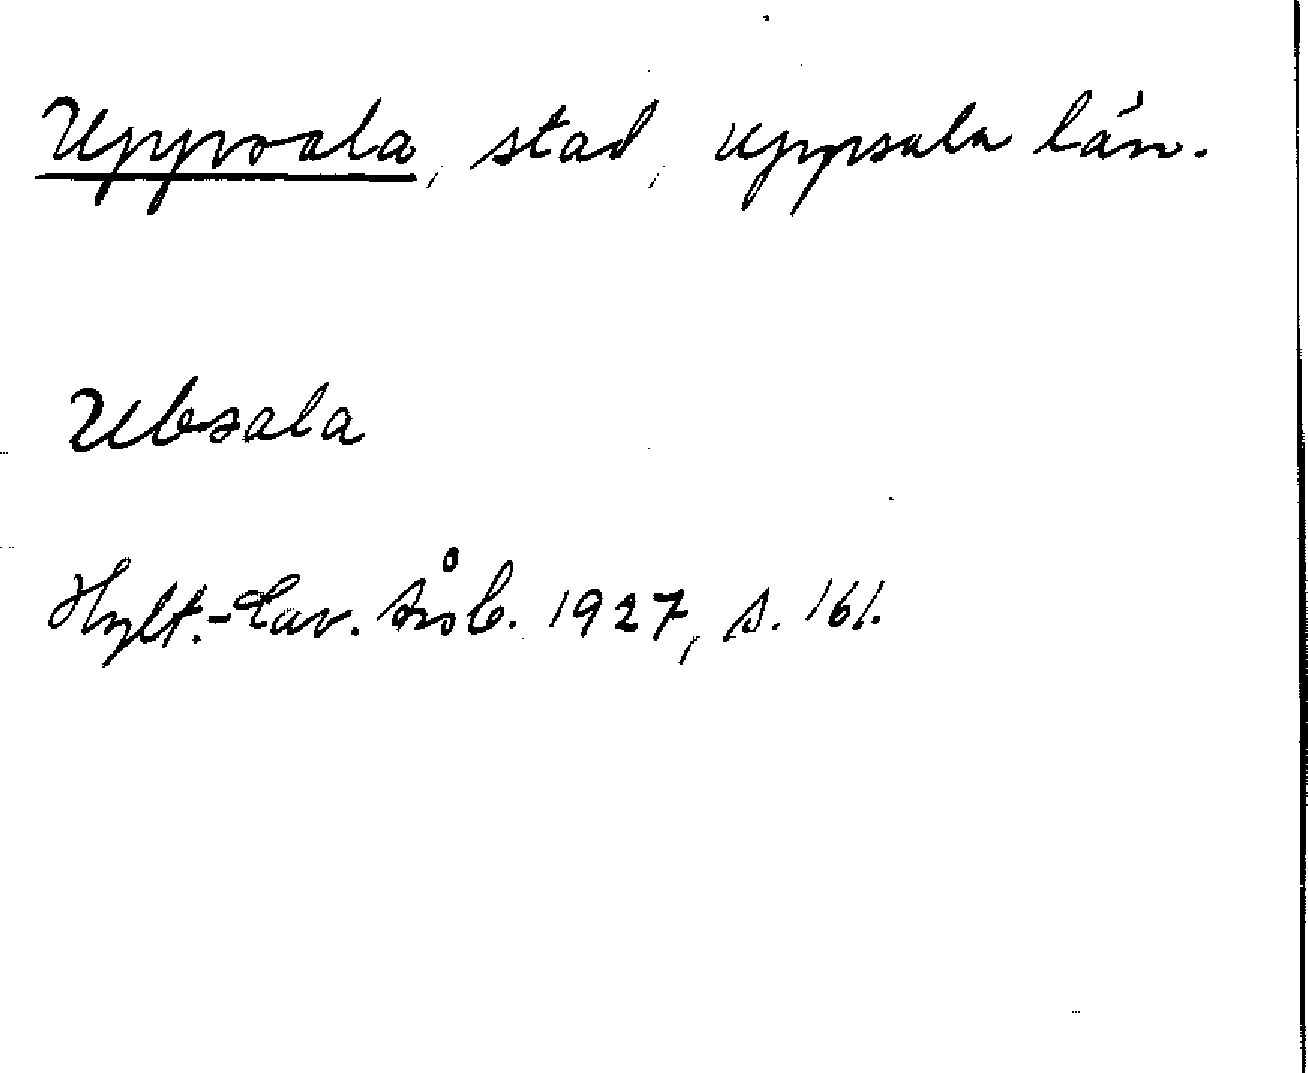 Uppsala, stad, Uppsala län.
Ubsala
Hylt.-Cav. årsb. 1927, s. 161.